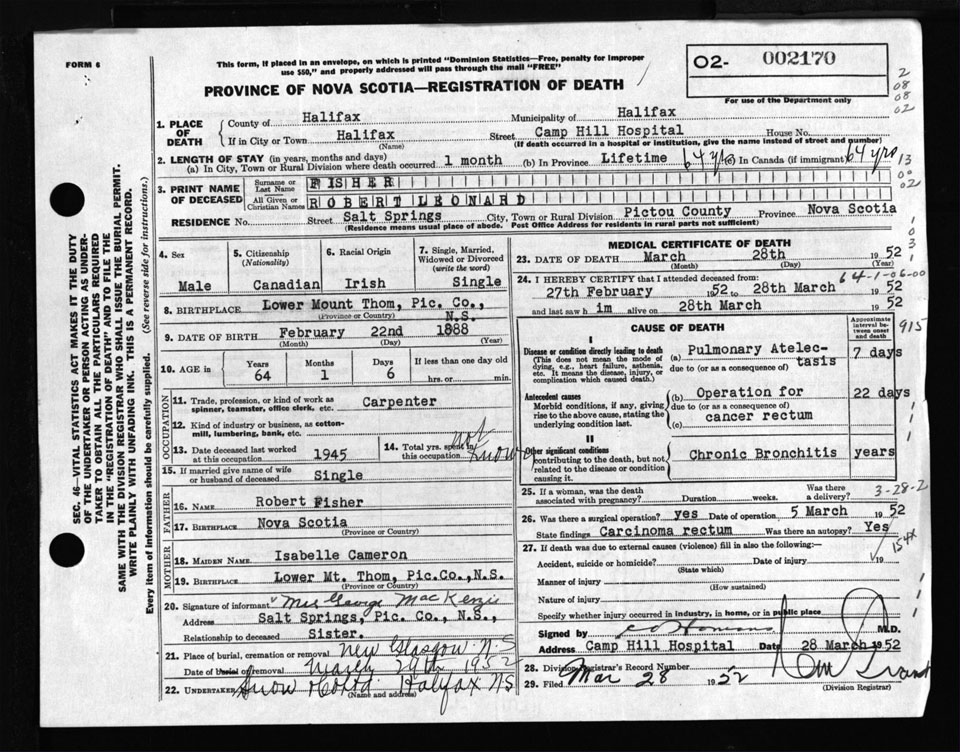 FORM 6
This form, if placed in an envelope, on which is printed "Dominion Statistics—Free, penalty for improper
use $50," and properly addressed will pass through the mail "FREE"
PROVINCE OF NOVA SCOTIA—REGISTRATION OF DEATH
02- 002170
For use of the Department only
2
08
08
02
1. PLACE OF DEATH
County of Halifax Municipality of Halifax
If in City or Town Halifax Street Camp Hill Hospital House No.
(Name) (If death occurred in a hospital or institution, give the name instead of street and number)
2. LENGTH OF STAY (in years, months and days)
(a) In City, Town or Rural Division where death occurred 1 month (b) In Province Lifetime 64 yrs (c) In Canada (if immigrant) 64 yrs
13
00
02
3. PRINT NAME OF DECEASED
Surname or Last Name FISHER
All Given or Christian Names ROBERT LEONARD
RESIDENCE No. Street Salt Springs City, Town or Rural Division Pictou County Province Nova Scotia
(Residence means usual place of abode. Post Office Address for residents in rural parts not sufficient)
4. Sex
Male
5. Citizenship (Nationality)
Canadian
6. Racial Origin
Irish
7. Single, Married, Widowed or Divorced (write the word)
Single
8. BIRTHPLACE Lower Mount Thom, Pic. Co., N.S.
(Province or Country)
9. DATE OF BIRTH February 22nd 1888
(Month) (Day) (Year)
10. AGE in
Years 64
Months 1
Days 6
If less than one day old
hrs. or min.
OCCUPATION
11. Trade, profession, or kind of work as
spinner, teamster, office clerk, etc. Carpenter
12. Kind of industry or business, as cotton-
mill, lumbering, bank, etc.
13. Date deceased last worked
at this occupation 1945
14. Total yrs. spent in
this occupation not known
15. If married give name of wife
or husband of deceased Single
FATHER
16. NAME Robert Fisher
17. BIRTHPLACE Nova Scotia
(Province or Country)
MOTHER
18. MAIDEN NAME Isabelle Cameron
19. BIRTHPLACE Lower Mt. Thom, Pic.Co.,N.S.
(Province or Country)
20. Signature of informant Mrs George MacKenzie
Address Salt Springs, Pic. Co., N.S.,
Relationship to deceased Sister.
21. Place of burial, cremation or removal New Glasgow N.S
Date of burial or removal March 29th 1952
22. UNDERTAKER Snow Halifax NS
(Name and address)
MEDICAL CERTIFICATE OF DEATH
23. DATE OF DEATH March 28th 1952
(Month) (Day) (Year)
64-1-06-00
24. I HEREBY CERTIFY that I attended deceased from:
27th February 1952 to 28th March 1952
and last saw h im alive on 28th March 1952
CAUSE OF DEATH
Approximate interval between onset and death
915
I
Disease or condition directly leading to death
(This does not mean the mode of
dying, e.g., heart failure, asthenia,
etc. It means the disease, injury, or
complication which caused death.)
(a) Pulmonary Atelec-
tasis 7 days
due to (or as a consequence of)
Antecedent causes
Morbid conditions, if any, giving
rise to the above cause, stating the
underlying condition last.
(b) Operation for 22 days
due to (or as a consequence of)
cancer rectum
(c)
II
Other significant conditions
contributing to the death, but not
related to the disease or condition
causing it.
Chronic Bronchitis years
25. If a woman, was the death
associated with pregnancy? Duration weeks. Was there
a delivery?
3-28-2
26. Was there a surgical operation? yes Date of operation 5 March 1952
State findings Carcinoma rectum Was there an autopsy? Yes
154x
27. If death was due to external causes (violence) fill in also the following:—
Accident, suicide or homicide? Date of injury 19
(State which)
Manner of injury
(How sustained)
Nature of injury
Specify whether injury occurred in industry, in home, or in public place
Signed by M.D.
Address Camp Hill Hospital Date 28 March 1952
28. Division Registrar's Record Number
29. Filed Mar 28 1952
(Division Registrar)
SEC. 46—VITAL STATISTICS ACT MAKES IT THE DUTY
OF THE UNDERTAKER OR PERSON ACTING AS UNDER-
TAKER TO OBTAIN ALL THE PARTICULARS REQUIRED
IN THE "REGISTRATION OF DEATH" AND TO FILE THE
SAME WITH THE DIVISION REGISTRAR WHO SHALL ISSUE THE BURIAL PERMIT.
WRITE PLAINLY WITH UNFADING INK. THIS IS A PERMANENT RECORD.
Every item of information should be carefully supplied. (See reverse side for instructions.)